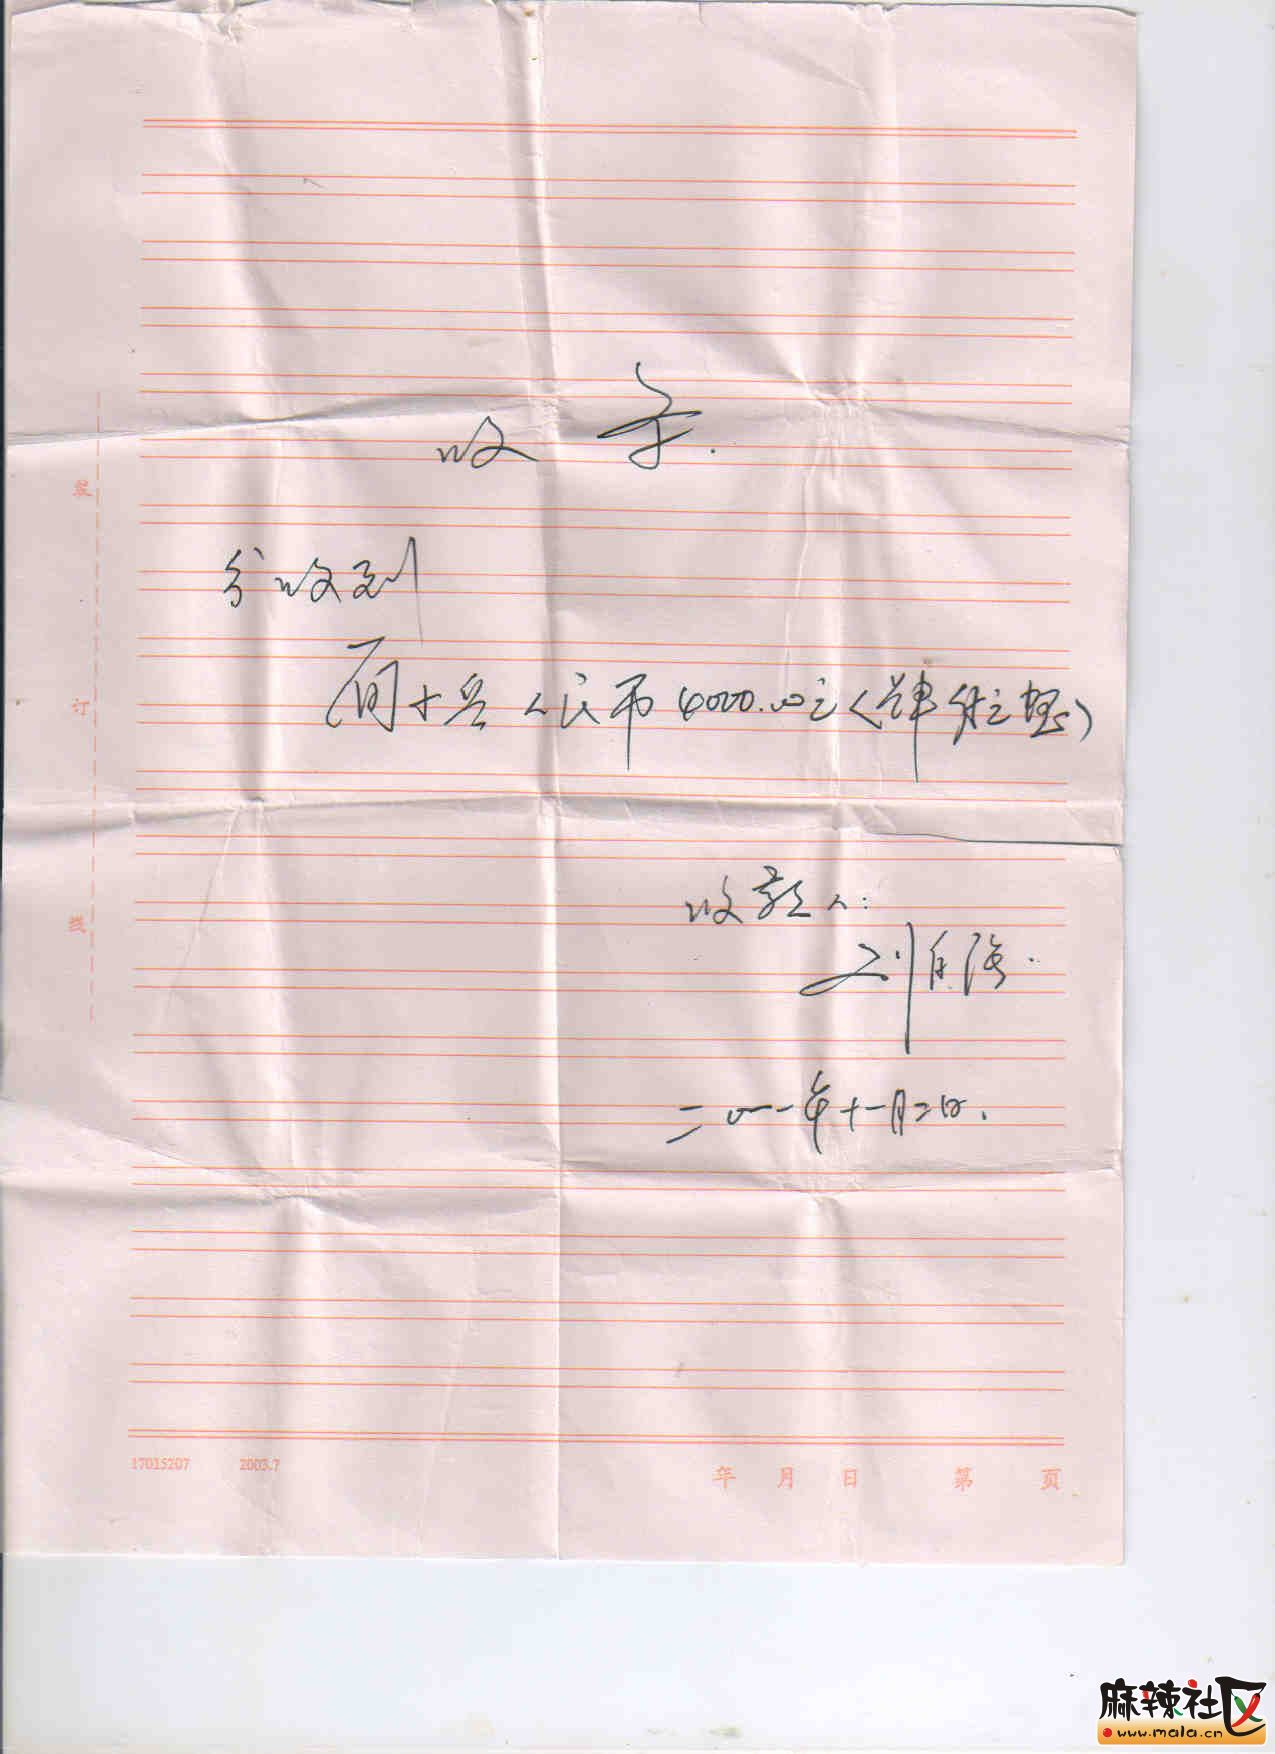 收条.
今收到
周十兵人民币4000.00元(肆仟元整)
收款人:
刘自强.
二〇一一年十一月二日.
装
订
线
17015207 2003.7
年 月 日 第 页
麻辣社区
www.mala.cn